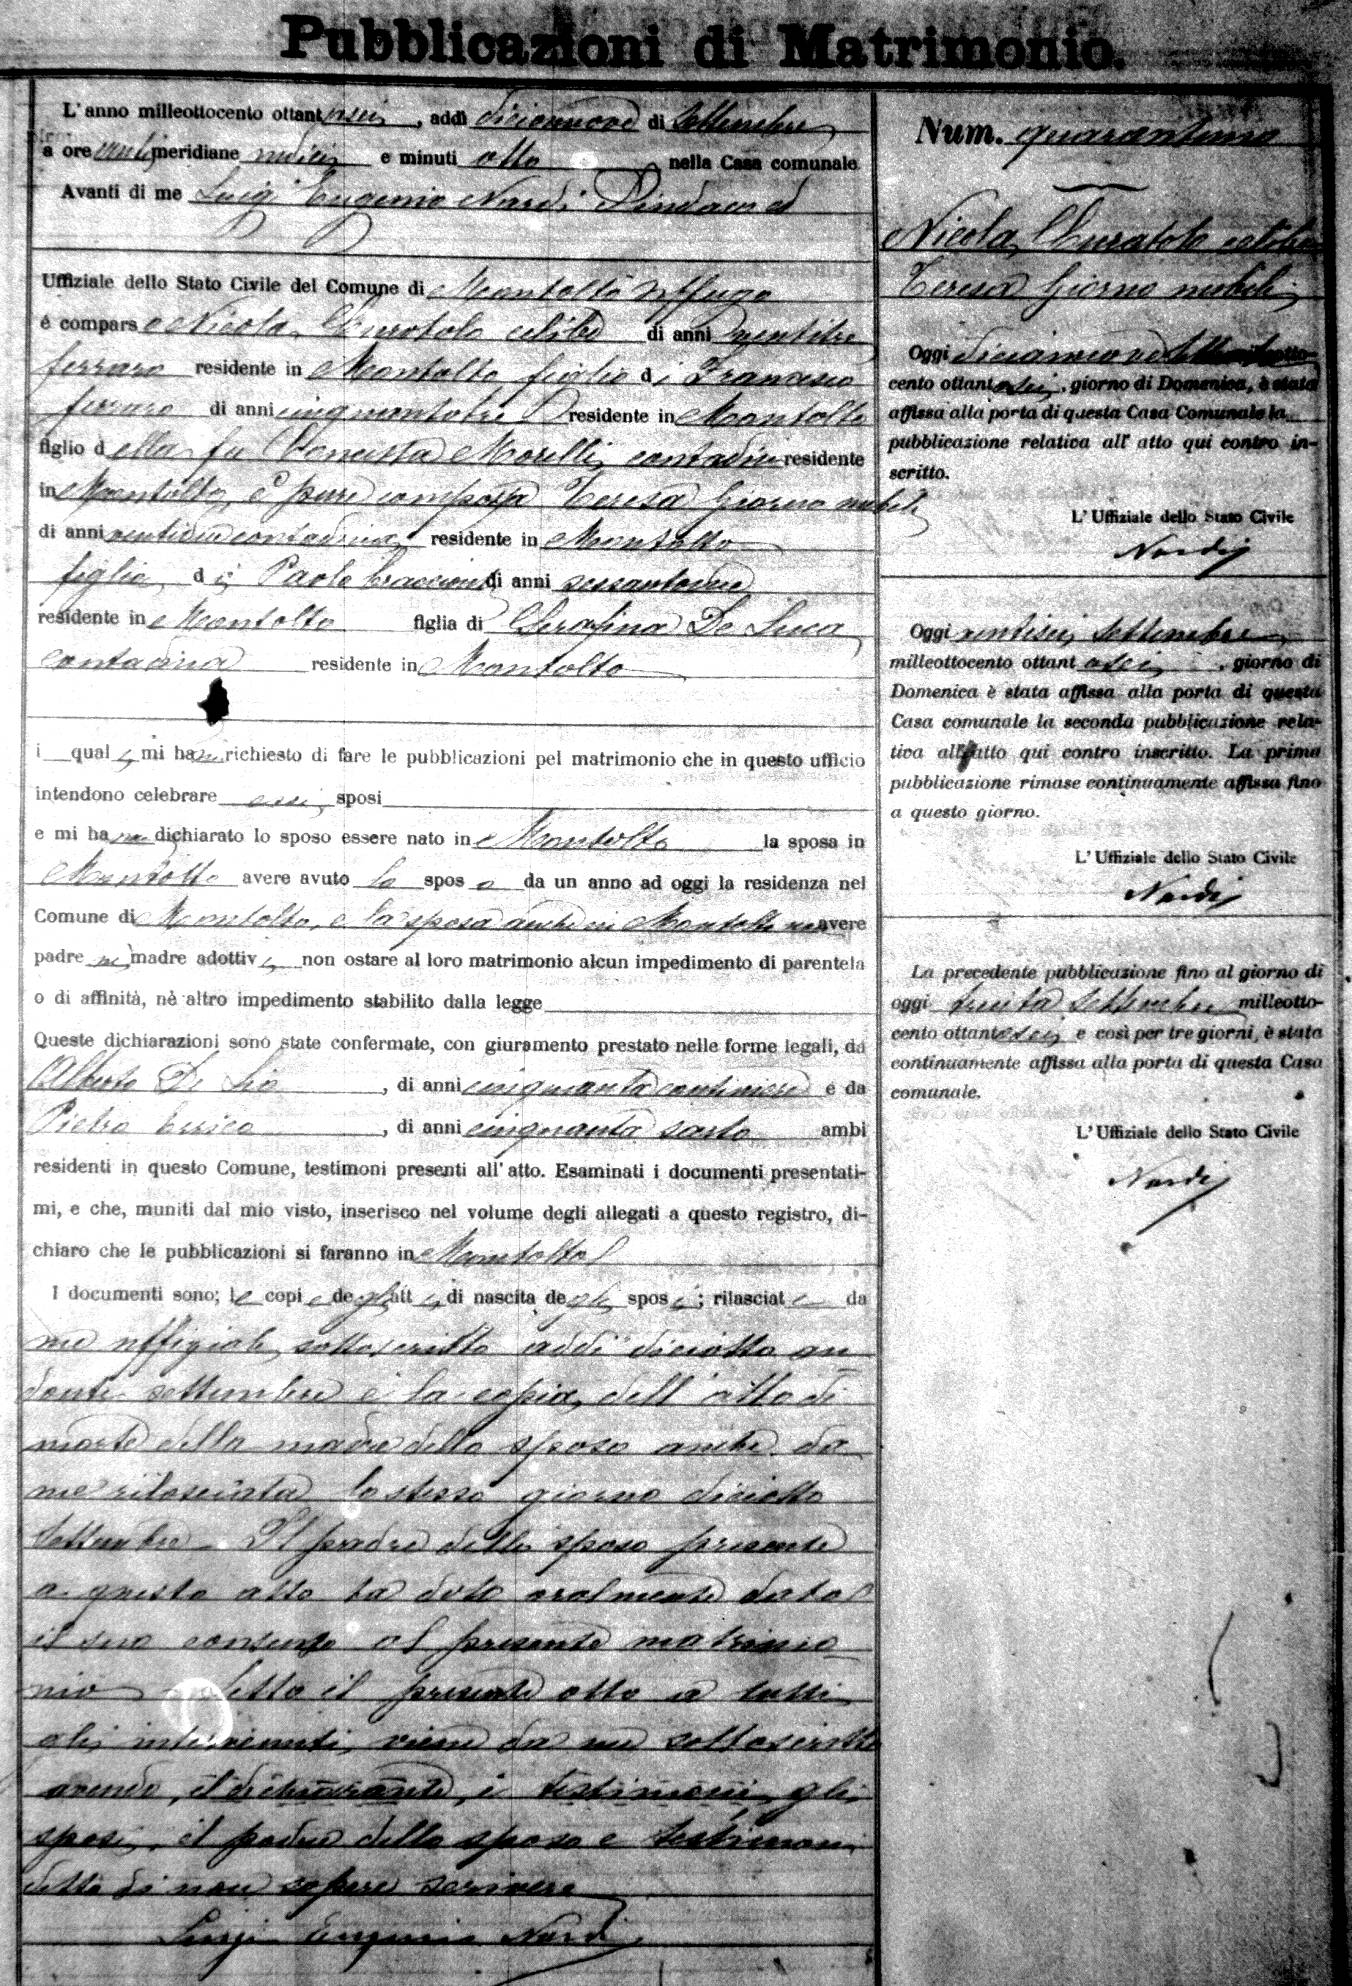 Pubblicazioni di Matrimonio.
L'anno milleottocento ottantasei, addì diciannove di Settembre
a ore antimeridiane undici e minuti otto nella Casa comunale
Avanti di me Luigi Eugenio Nardi Sindaco ed
Uffiziale dello Stato Civile del Comune di Montalto Uffugo
è compars o Nicola Curatolo celibe di anni ventitre
ferraro residente in Montalto figlio di Francesco
ferraro di anni cinquantatre residente in Montalto
figlio della fu Morelli contadina residente
in Montalto, è pure comparsa Teresa Giorno nubile
di anni ventidue contadina residente in Montalto
figlia di Paolo di anni sessantadue
residente in Montalto figlia di Serafina De Luca
contadina residente in Montalto
i quali mi hanno richiesto di fare le pubblicazioni pel matrimonio che in questo ufficio
intendono celebrare essi sposi
e mi hanno dichiarato lo sposo essere nato in Montalto la sposa in
Montalto avere avuto lo sposo da un anno ad oggi la residenza nel
Comune di Montalto, e la sposa anche in Montalto non avere
padre nè madre adottivi non ostare al loro matrimonio alcun impedimento di parentela
o di affinità, nè altro impedimento stabilito dalla legge
Queste dichiarazioni sono state confermate, con giuramento prestato nelle forme legali, da
Alberto De Lio, di anni cinquanta cantiniere e da
Pietro Errico, di anni cinquanta sarto ambi
residenti in questo Comune, testimoni presenti all'atto. Esaminati i documenti presentati-
mi, e che, muniti dal mio visto, inserisco nel volume degli allegati a questo registro, di-
chiaro che le pubblicazioni si faranno in Montalto
I documenti sono; le copie degli atti di nascita degli sposi; rilasciate da
me uffiziale sottoscritto addì diciotto an
dante settembre e la copia dell'atto di
morte della madre dello sposo anche da
me rilasciata lo stesso giorno diciotto
Settembre. Il padre dello sposo presente
a questo atto ha oralmente dato
il suo consenso al presente matrimo
nio Letto il presente atto a tutti
gli intervenuti, viene da me sottoscritto
avendo, il dichiarante, i testimoni, gli
sposi, il padre dello sposo e testimoni
detto di non sapere scrivere
Luigi Eugenio Nardi
Num. quarantuno
Nicola Curatolo celibe
Teresa Giorno nubile
Oggi diciannove Settembre milleotto-
cento ottantasei, giorno di Domenica, è stata
affissa alla porta di questa Casa Comunale la
pubblicazione relativa all'atto qui contro in-
scritto.
L'Uffiziale dello Stato Civile
Nardi
Oggi ventisei settembre
milleottocento ottantasei, giorno di
Domenica è stata affissa alla porta di questa
Casa comunale la seconda pubblicazione rela-
tiva all'atto qui contro inscritto. La prima
pubblicazione rimase continuamente affissa fino
a questo giorno.
L'Uffiziale dello Stato Civile
Nardi
La precedente pubblicazione fino al giorno di
oggi trenta Settembre milleotto-
cento ottantasei e così per tre giorni, è stata
continuamente affissa alla porta di questa Casa
comunale.
L'Uffiziale dello Stato Civile
Nardi